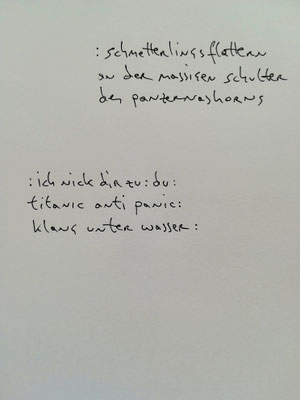 : schmetterlingsflattern
an der massigen schulter
des panzernashorns
: ich nick dir zu : du :
titanic anti panic :
klang unter wasser :